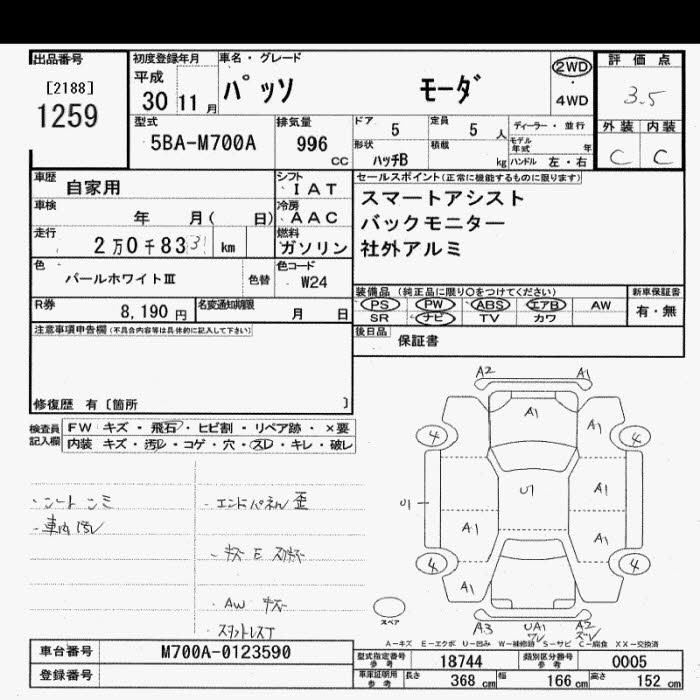 出品番号
[2188]
1259
初度登録年月
平成
30 11 月
車名・グレード
パッソ モーダ
2WD
・
4WD
評価点
3.5
外装 内装
C C
型式
5BA-M700A
排気量
996 cc
ドア 5
定員 5 人
形状 ハッチB
積載 kg
ディーラー・並行
モデル年式 年
ハンドル 左・右
車歴 自家用
車検 年 月( 日)
走行 2万0千83 31 km
シフト IAT
冷房 AAC
燃料 ガソリン
色 パールホワイトⅢ 色替
色コード W24
R券 8,190 円
名変通知期限 月 日
セールスポイント(正常に機能するものに限ります)
スマートアシスト
バックモニター
社外アルミ
装備品(純正品に限り○をつけてください)
PS PW ABS エアB AW
SR ナビ TV カワ
新車保証書
有・無
後日品 保証書
注意事項申告欄(不具合内容等は具体的に記入して下さい)
修復歴 有〔箇所 〕
検査員記入欄
FW キズ・飛石・ヒビ割・リペア跡・×要
内装 キズ・汚レ・コゲ・穴・スレ・キレ・破レ
・シートシミ
・車内汚レ
・エンドパネル歪
・AW キズ
A2 A1
A1 A1
4 4
U1 U1 A1
A1 A1
4 4
A1
A3 UA1 A2
スペア
A-キズ E-エクボ U-凹み W-補修跡 S-サビ C-腐食 XX-交換済
車台番号 M700A-0123590
登録番号
型式指定番号 参考 18744
類別区分番号 参考 0005
車庫証明用 参考 長さ 368 cm 幅 166 cm 高さ 152 cm